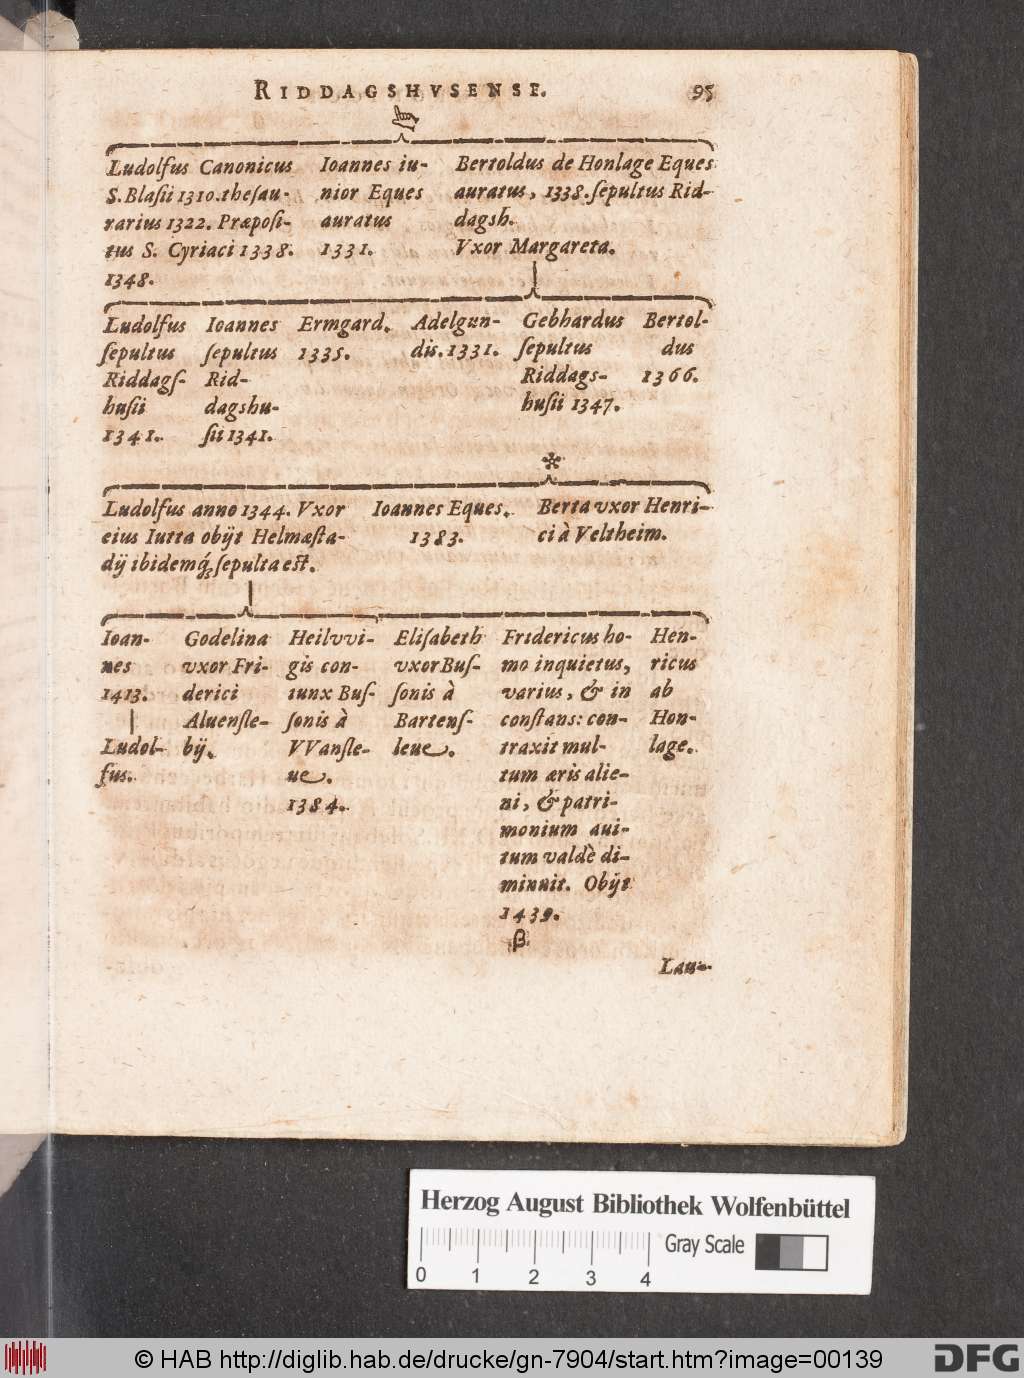 RIDDAGSHVSENSE. 95
Ludolfus Canonicus
S. Blasii 1310. thesau-
rarius 1322. Præposi-
tus S. Cyriaci 1338.
1348.
Ioannes iu-
nior Eques
auratus
1331.
Bertoldus de Honlage Eques
auratus, 1338. sepultus Rid-
dagsh.
Vxor Margareta.
Ludolfus
sepultus
Riddagſ-
husii
1341.
Ioannes
sepultus
Rid-
dagshu-
sii 1341.
Ermgard.
1335.
Adelgun-
dis. 1331.
Gebhardus
sepultus
Riddags-
husii 1347.
Bertol-
dus
1366.
*
Ludolfus anno 1344. Vxor
eius Iutta obijt Helmæsta-
dij ibidemq́; sepulta est.
Ioannes Eques.
1383.
Berta vxor Henri-
ci à Veltheim.
Ioan-
nes
1413.
Ludol-
fus.
Godelina
vxor Fri-
derici
Aluensle-
bij.
Heilvvi-
gis con-
iunx Buſ-
sonis à
VVansle-
ue.
1384.
Elisabeth
vxor Buſ-
sonis à
Bartenſ-
leue.
Fridericus ho-
mo inquietus,
varius, & in
constans: con-
traxit mul-
tum æris alie-
ni, & patri-
monium aui-
tum valdè di-
minuit. Obijt
1439.
β
Hen-
ricus
ab
Hon-
lage.
Lau-
Herzog August Bibliothek Wolfenbüttel
0 1 2 3 4
Gray Scale
© HAB http://diglib.hab.de/drucke/gn-7904/start.htm?image=00139
DFG